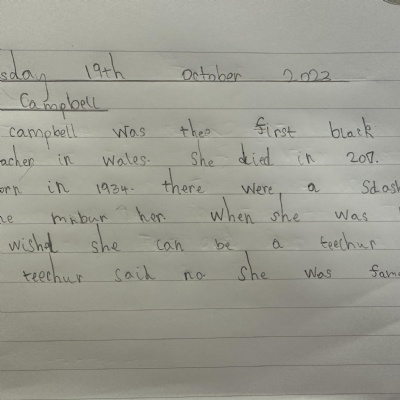 sday 19th October 2022
Campbell
campbell was theo first black
acher in wales. she died in 207.
orn in 1934. there were a
he her. when she was
wishd she can be a teechur
teechur said no. she was fam